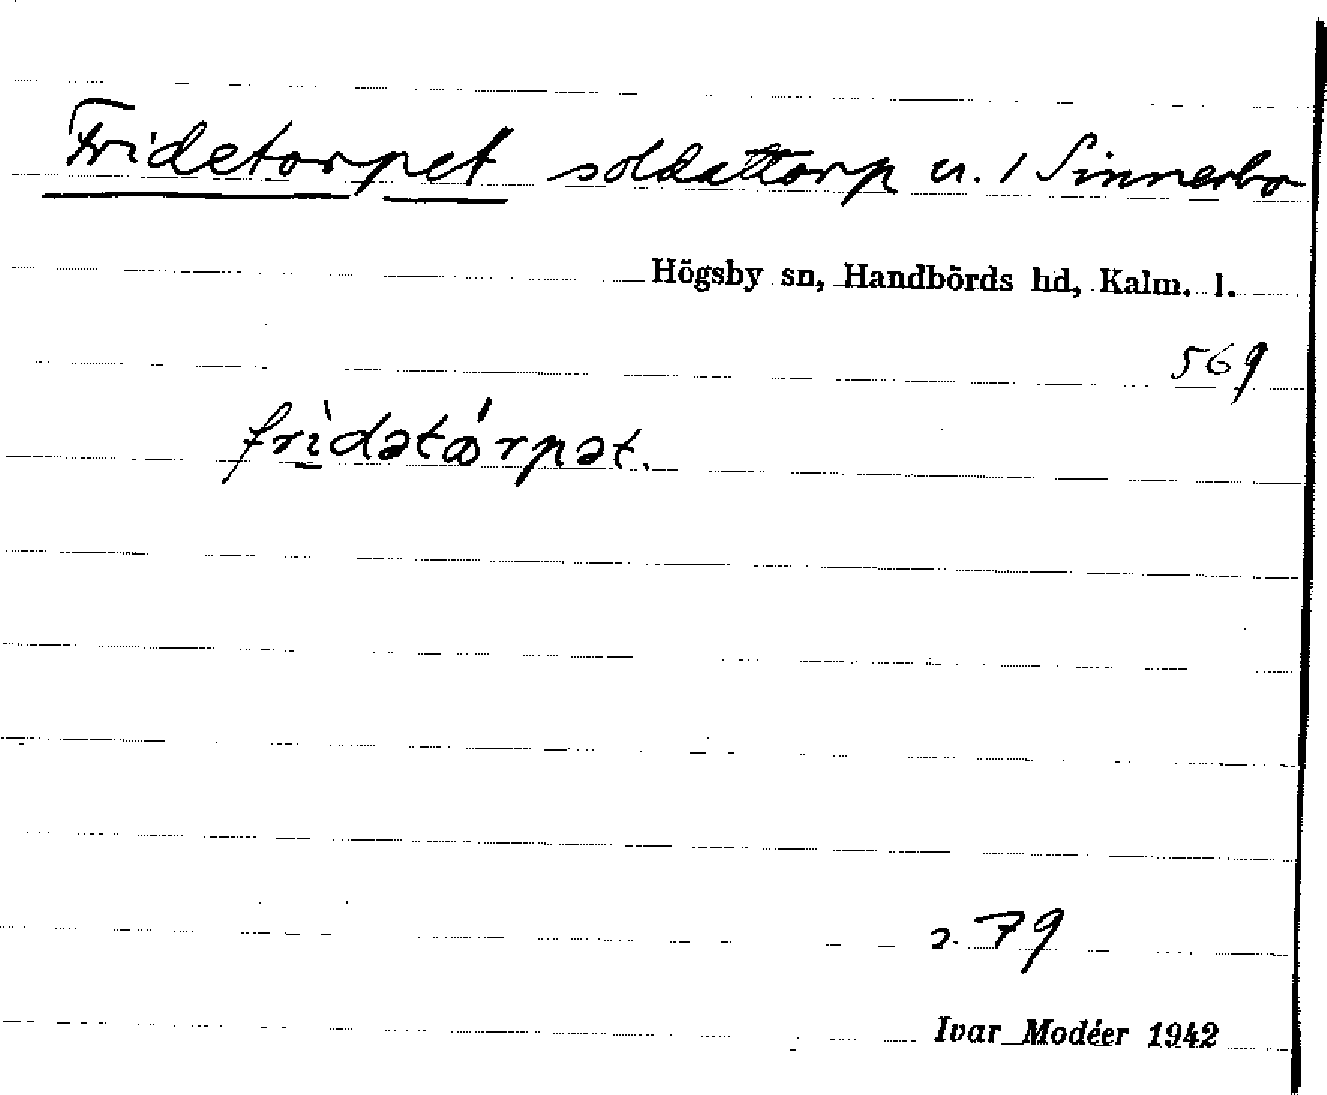 Fridetorpet soldattorp u. 1 Sinnerbo
Högsby sn, Handbörds hd, Kalm. l.
569
frìdətórpət.
s. 79
Ivar Modéer 1942